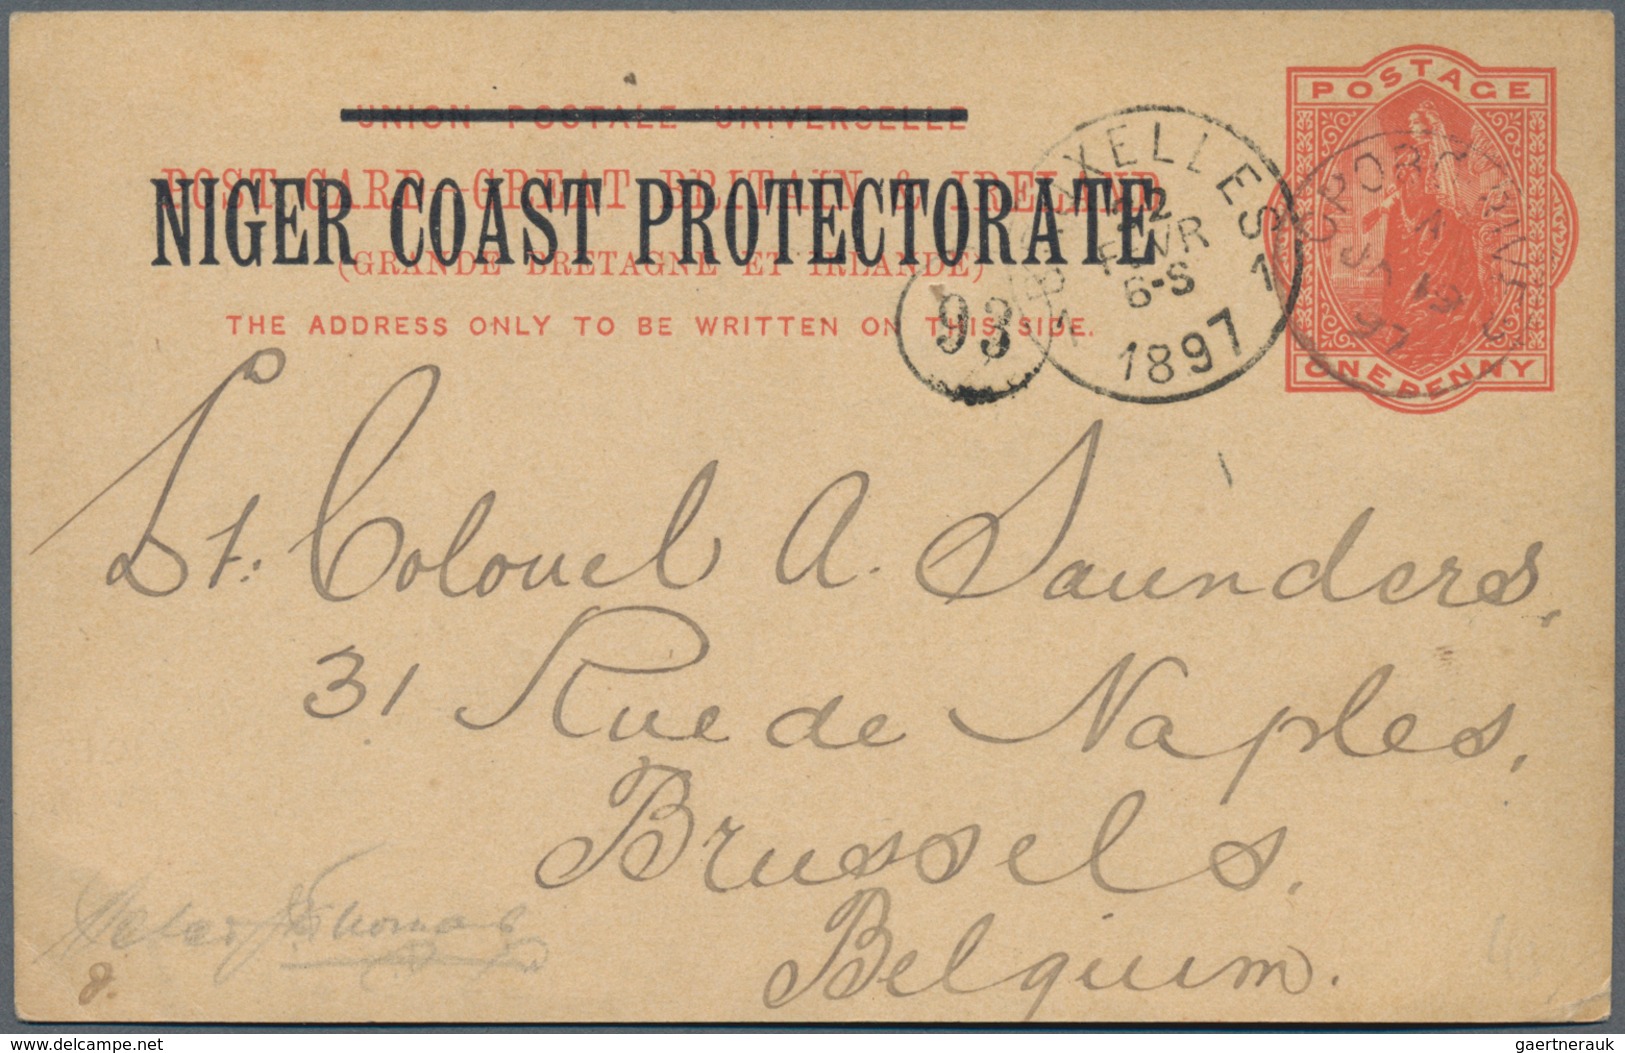 UNION POSTALE UNIVERSELLE
POST CARD—GREAT BRITAIN & IRELAND
NIGER COAST PROTECTORATE
(GRANDE BRETAGNE ET IRLANDE)
THE ADDRESS ONLY TO BE WRITTEN ON THIS SIDE.
BRUXELLES
1 1
FEVR
6-S
1897
93
POSTAGE
ONE PENNY
JA 19
97
Lt. Colonel A. Saunders,
31 Rue de Naples,
Brussels.
Belgium.
delcampe.net
gaertnerauk